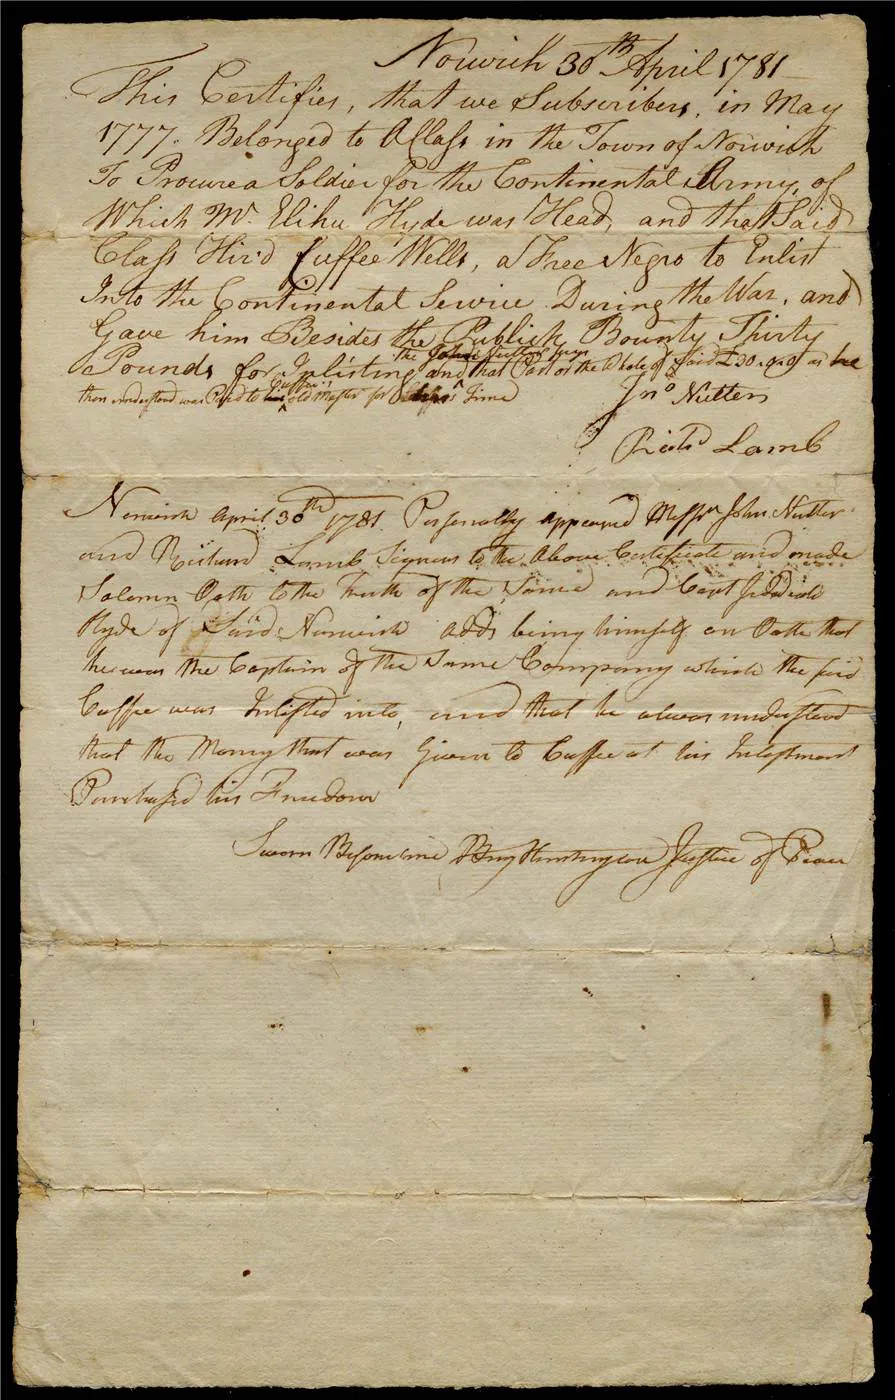 Norwich 30th April 1781
This Certifies, that we Subscribers, in May
1777. Belonged to A Class in the Town of Norwich
To Procure a Soldier for the Continental Army, of
Which Mr. Elihu Hyde was Head, and that Said
Class Hir'd Cuffee Wells, a Free Negro to Enlist
Into the Continental Service During the War, and
Gave him Besides the Publick Bounty Thirty
Pounds for Inlisting and that Part or the Whole of Said £30.0.0 as he
then understood was Paid to Cuffee's old Master for his Time
Jno Nutter
Richd Lamb
Norwich April 30th 1781. Personally appeared Messrs John Nutter
and Richard Lamb Signers to the Above Certificate and made
Solemn Oath to the Truth of the Same and Capt Jedidiah
Hyde of Said Norwich adds being himself on Oath that
he was the Captain of the Same Company which the said
Cuffee was Inlisted into, and that he always understood
that the Money that was Given to Cuffee at his Inlistment
Purchased his Freedom
Sworn Before me Benj Huntington Justice of Peace